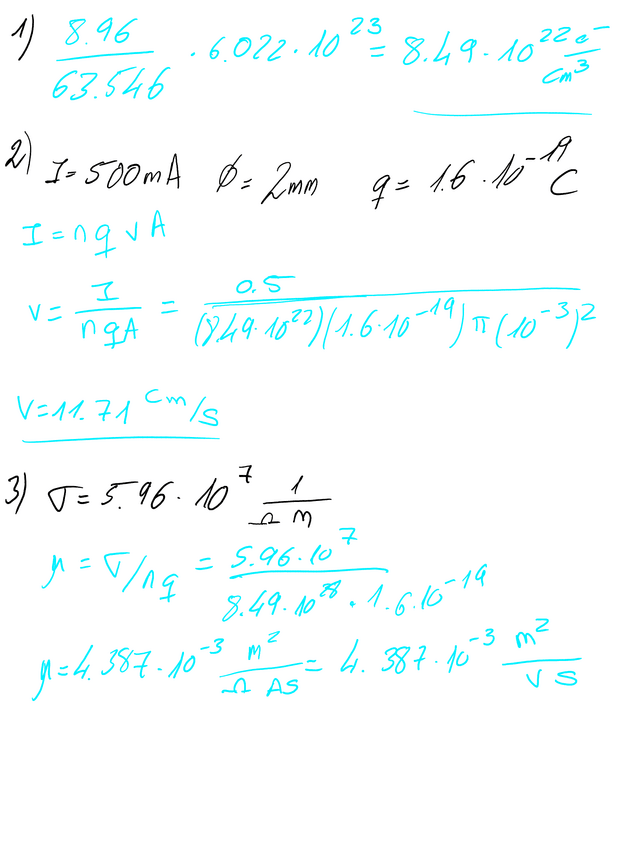 1) 8.96/63.546 · 6.022 · 10^23 = 8.49 · 10^22 e^-/cm^3
2) I = 500mA Ø = 2mm q = 1.6 · 10^-19 C
I = nqvA
v = I/nqA = 0.5/(8.49·10^22)(1.6·10^-19)π(10^-3)^2
V = 11.71 cm/s
3) σ = 5.96 · 10^7 1/Ω m
μ = σ/nq = 5.96·10^7/8.49·10^28 · 1.6·10^-19
μ = 4.387·10^-3 m^2/Ω AS = 4.387·10^-3 m^2/V S